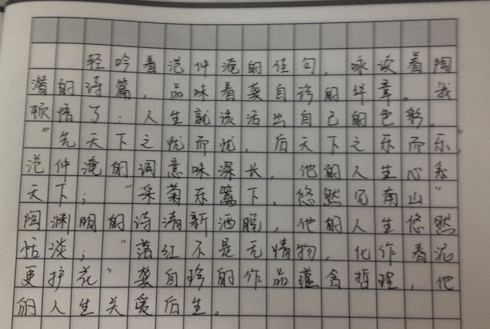 轻吟着范仲淹的佳句，咏读着陶
潜的诗篇，品味着龚自珍的华章，我
顿悟了：人生就该活出自己的色彩。
“先天下之忧而忧，后天下之乐而乐，”
范仲淹的词意味深长，他的人生心系
天下；“采菊东篱下，悠然见南山”
陶渊明的诗清新洒脱，他的人生悠然
恬淡；“落红不是无情物，化作春泥
更护花”龚自珍的作品蕴含哲理，他
的人生关爱后生。